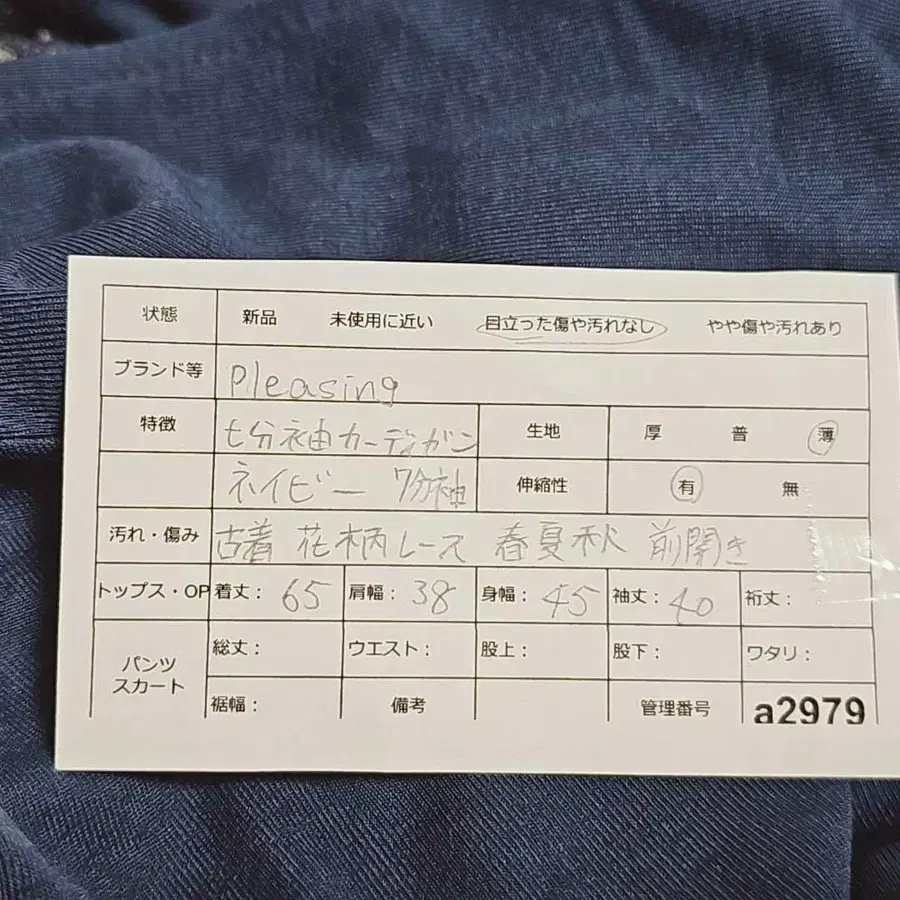 状態 新品 未使用に近い 目立った傷や汚れなし やや傷や汚れあり
ブランド等 Pleasing
特徴 七分袖カーディガン 生地 厚 普 薄
ネイビー 7分袖 伸縮性 有 無
汚れ・傷み 古着 花柄レース 春夏秋 前開き
トップス・OP 着丈: 65 肩幅: 38 身幅: 45 袖丈: 40 裄丈:
パンツ スカート 総丈: ウエスト: 股上: 股下: ワタリ:
裾幅: 備考 管理番号 a2979